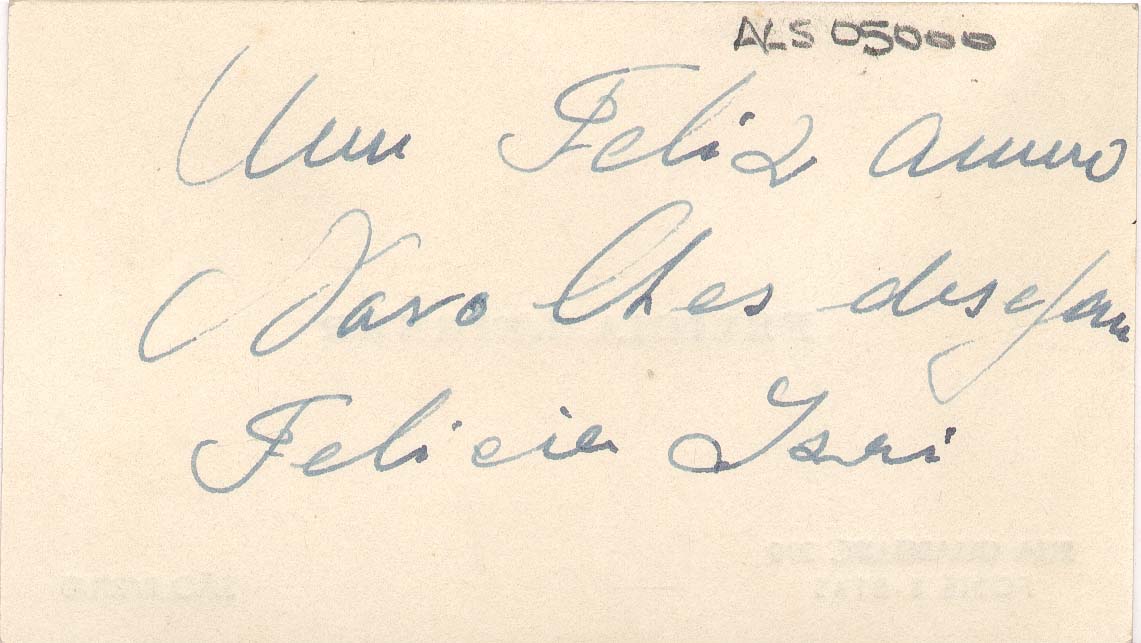 ALS 05000
Um Feliz anno
Novo lhes desejam
Felicia Isai